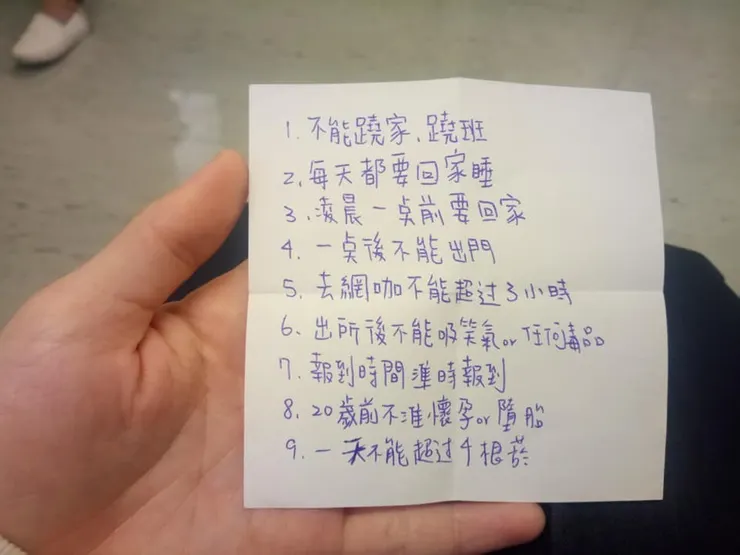 1. 不能蹺家、蹺班
2. 每天都要回家睡
3. 凌晨一点前要回家
4. 一点後不能出門
5. 去網咖不能超过3小時
6. 出所後不能吸笑氣or任何毒品
7. 報到時間準時報到
8. 20歲前不准懷孕or墮胎
9. 一天不能超过4根菸